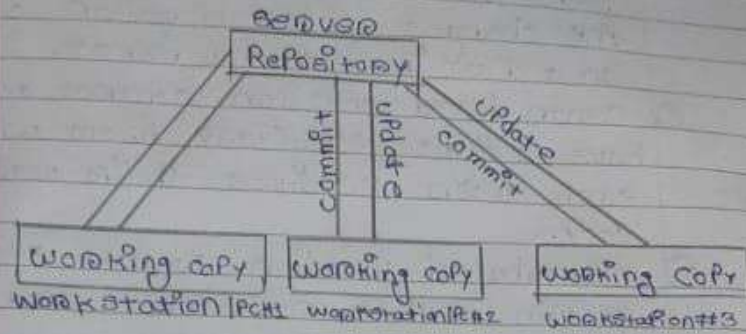 Server
Repository
commit
update
commit
update
working copy
working copy
working copy
workstation/PC#1
workstation/PC#2
workstation#3